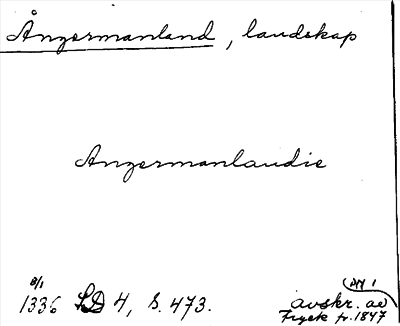 Ångermanland, landskap
Angermanlandie
8/1
1336 SD 4, s. 473.
avskr. av
Tryck fr. 1847